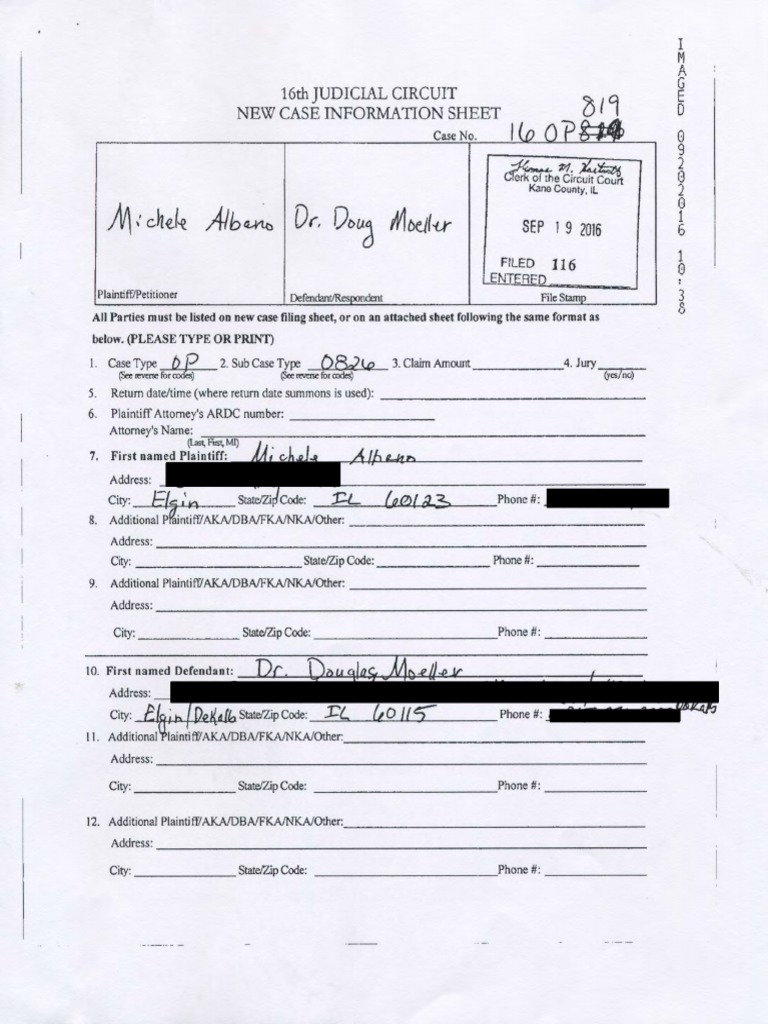 16th JUDICIAL CIRCUIT
NEW CASE INFORMATION SHEET
819
Case No. 16 OP
Michele Albano
Dr. Doug Moeller
Clerk of the Circuit Court
Kane County, IL
SEP 19 2016
FILED 116
ENTERED
Plaintiff/Petitioner
Defendant/Respondent
File Stamp
IMAGED 09202016 10:38
All Parties must be listed on new case filing sheet, or on an attached sheet following the same format as
below. (PLEASE TYPE OR PRINT)
1. Case Type OP 2. Sub Case Type 0826 3. Claim Amount 4. Jury
(See reverse for codes) (See reverse for codes) (yes/no)
5. Return date/time (where return date summons is used):
6. Plaintiff Attorney's ARDC number:
Attorney's Name:
(Last, First, MI)
7. First named Plaintiff: Michele Albano
Address:
City: Elgin State/Zip Code: IL 60123 Phone #:
8. Additional Plaintiff/AKA/DBA/FKA/NKA/Other:
Address:
City: State/Zip Code: Phone #:
9. Additional Plaintiff/AKA/DBA/FKA/NKA/Other:
Address:
City: State/Zip Code: Phone #:
10. First named Defendant: Dr. Douglas Moeller
Address:
City: Elgin/DeKalb State/Zip Code: IL 60115 Phone #:
11. Additional Plaintiff/AKA/DBA/FKA/NKA/Other:
Address:
City: State/Zip Code: Phone #:
12. Additional Plaintiff/AKA/DBA/FKA/NKA/Other:
Address:
City: State/Zip Code: Phone #: